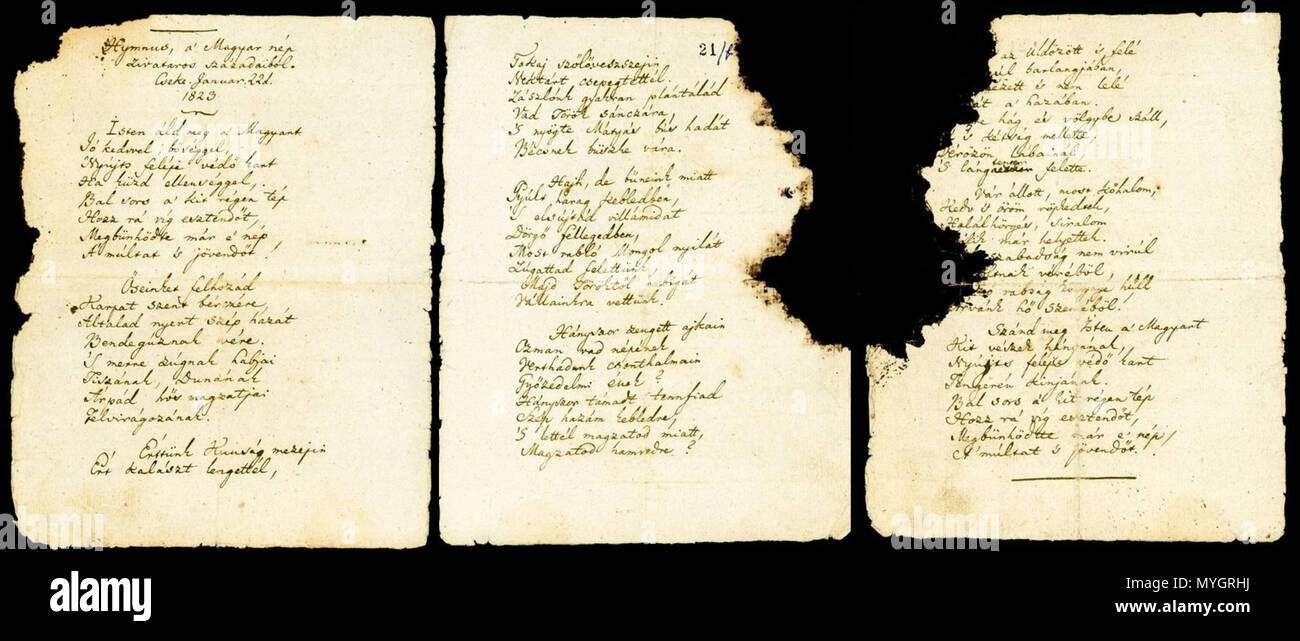 Hymnus, a' Magyar nép
zivataros századaiból.
Cseke. Januar. 22d.
1823
Isten áld meg a' Magyart
Jó kedvvel, bőséggel,
Nyújts feléje védő kart
Ha küzd ellenséggel,
Bal sors a' kit régen tép
Hozz rá víg esztendőt,
Megbünhödte már e' nép
A' múltat 's jövendőt!
Őseinket felhozád
Karpat szent bérczére,
Általad nyert szép hazát
Bendegúznak vére.
'S merre zúgnak habjai
Tiszának, Dunának
Árpád hős magzatjai
Felvirágozának.
Értünk Kunság mezejin
Ért kalászt lengettél,
21/
Tokaj szőlővesszejin
Nektárt csepegtettél.
Zászlónk gyakran plántálád
Vad Török sánczára,
'S nyögte Mátyás bús hadát
Bécsnek büszke vára.
Hajh, de bűneink miatt
Gyúlt harag kebledben,
'S elsújtád villámidat
Dörgő fellegedben,
Most rabló Mongol nyilát
Zúgattad felettünk,
Majd Töröktől rabigát
Vállainkra vettünk.
Hányszor zengett ajkain
Ozman vad népének
Vert hadunk csonthalmain
Győzedelmi ének?
Hányszor támadt tennfiad
Szép hazám kebledre,
'S lettél magzatod miatt,
Magzatod hamvvedre?
az üldözött 's felé
barlangjában,
nézett 's nem lelé
a' hazában.
hág és völgybe száll,
's kétség mellette,
Vérözön lábainál,
'S lángtenger felette.
Vár állott, most kőhalom,
Kedv 's öröm röpkedtek,
Halálhörgés, siralom
már helyettek.
szabadság nem virúl
véréből,
rabság könnye hull
Árvánk hő szeméből.
Szánd meg Isten a' Magyart
Kit vészek hányának,
Nyújts feléje védő kart
Tengerén kínjának.
Bal sors a' kit régen tép
Hozz rá víg esztendőt,
Megbünhödte már e' nép,
A' múltat 's jövendőt.
alamy
Image ID: MYGRHJ
www.alamy.com